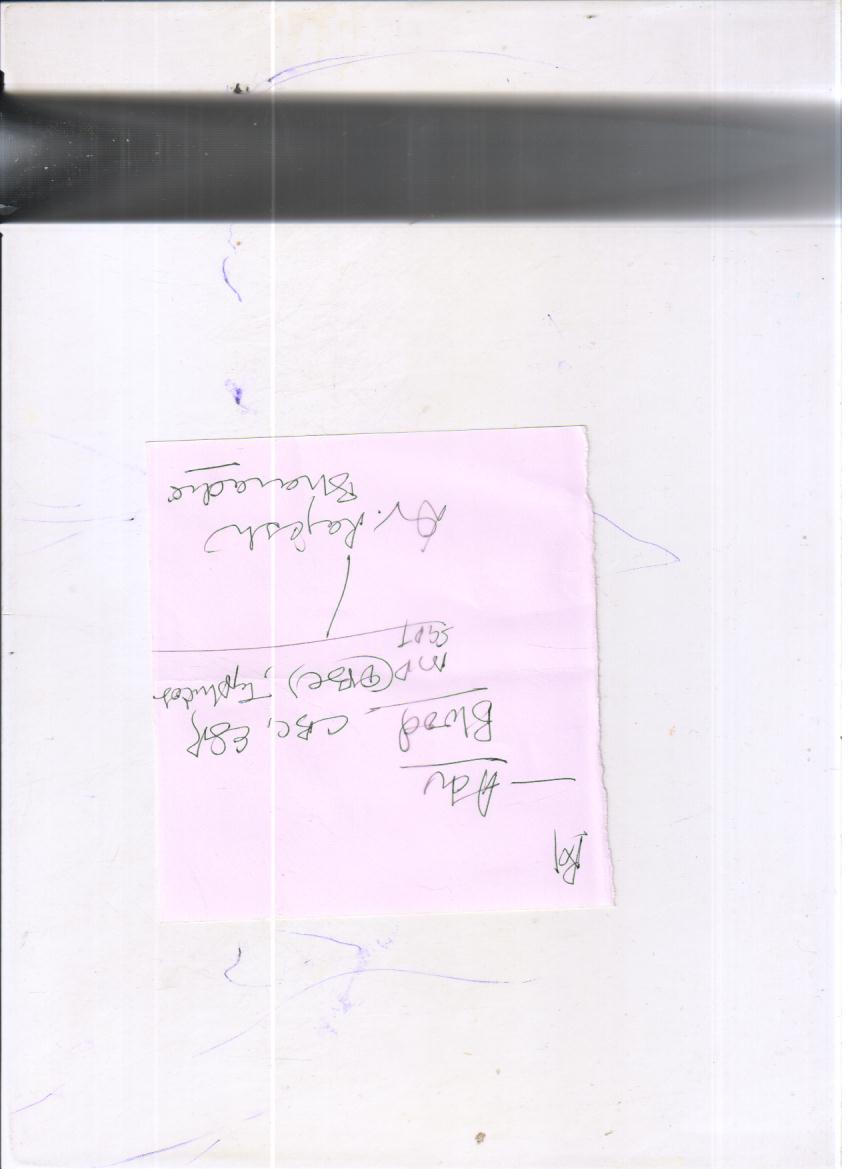 Rx
— Adv
Blood - CBC, ESR,
MP (PBC), Typhidot
SGPT
Dr. Rajesh